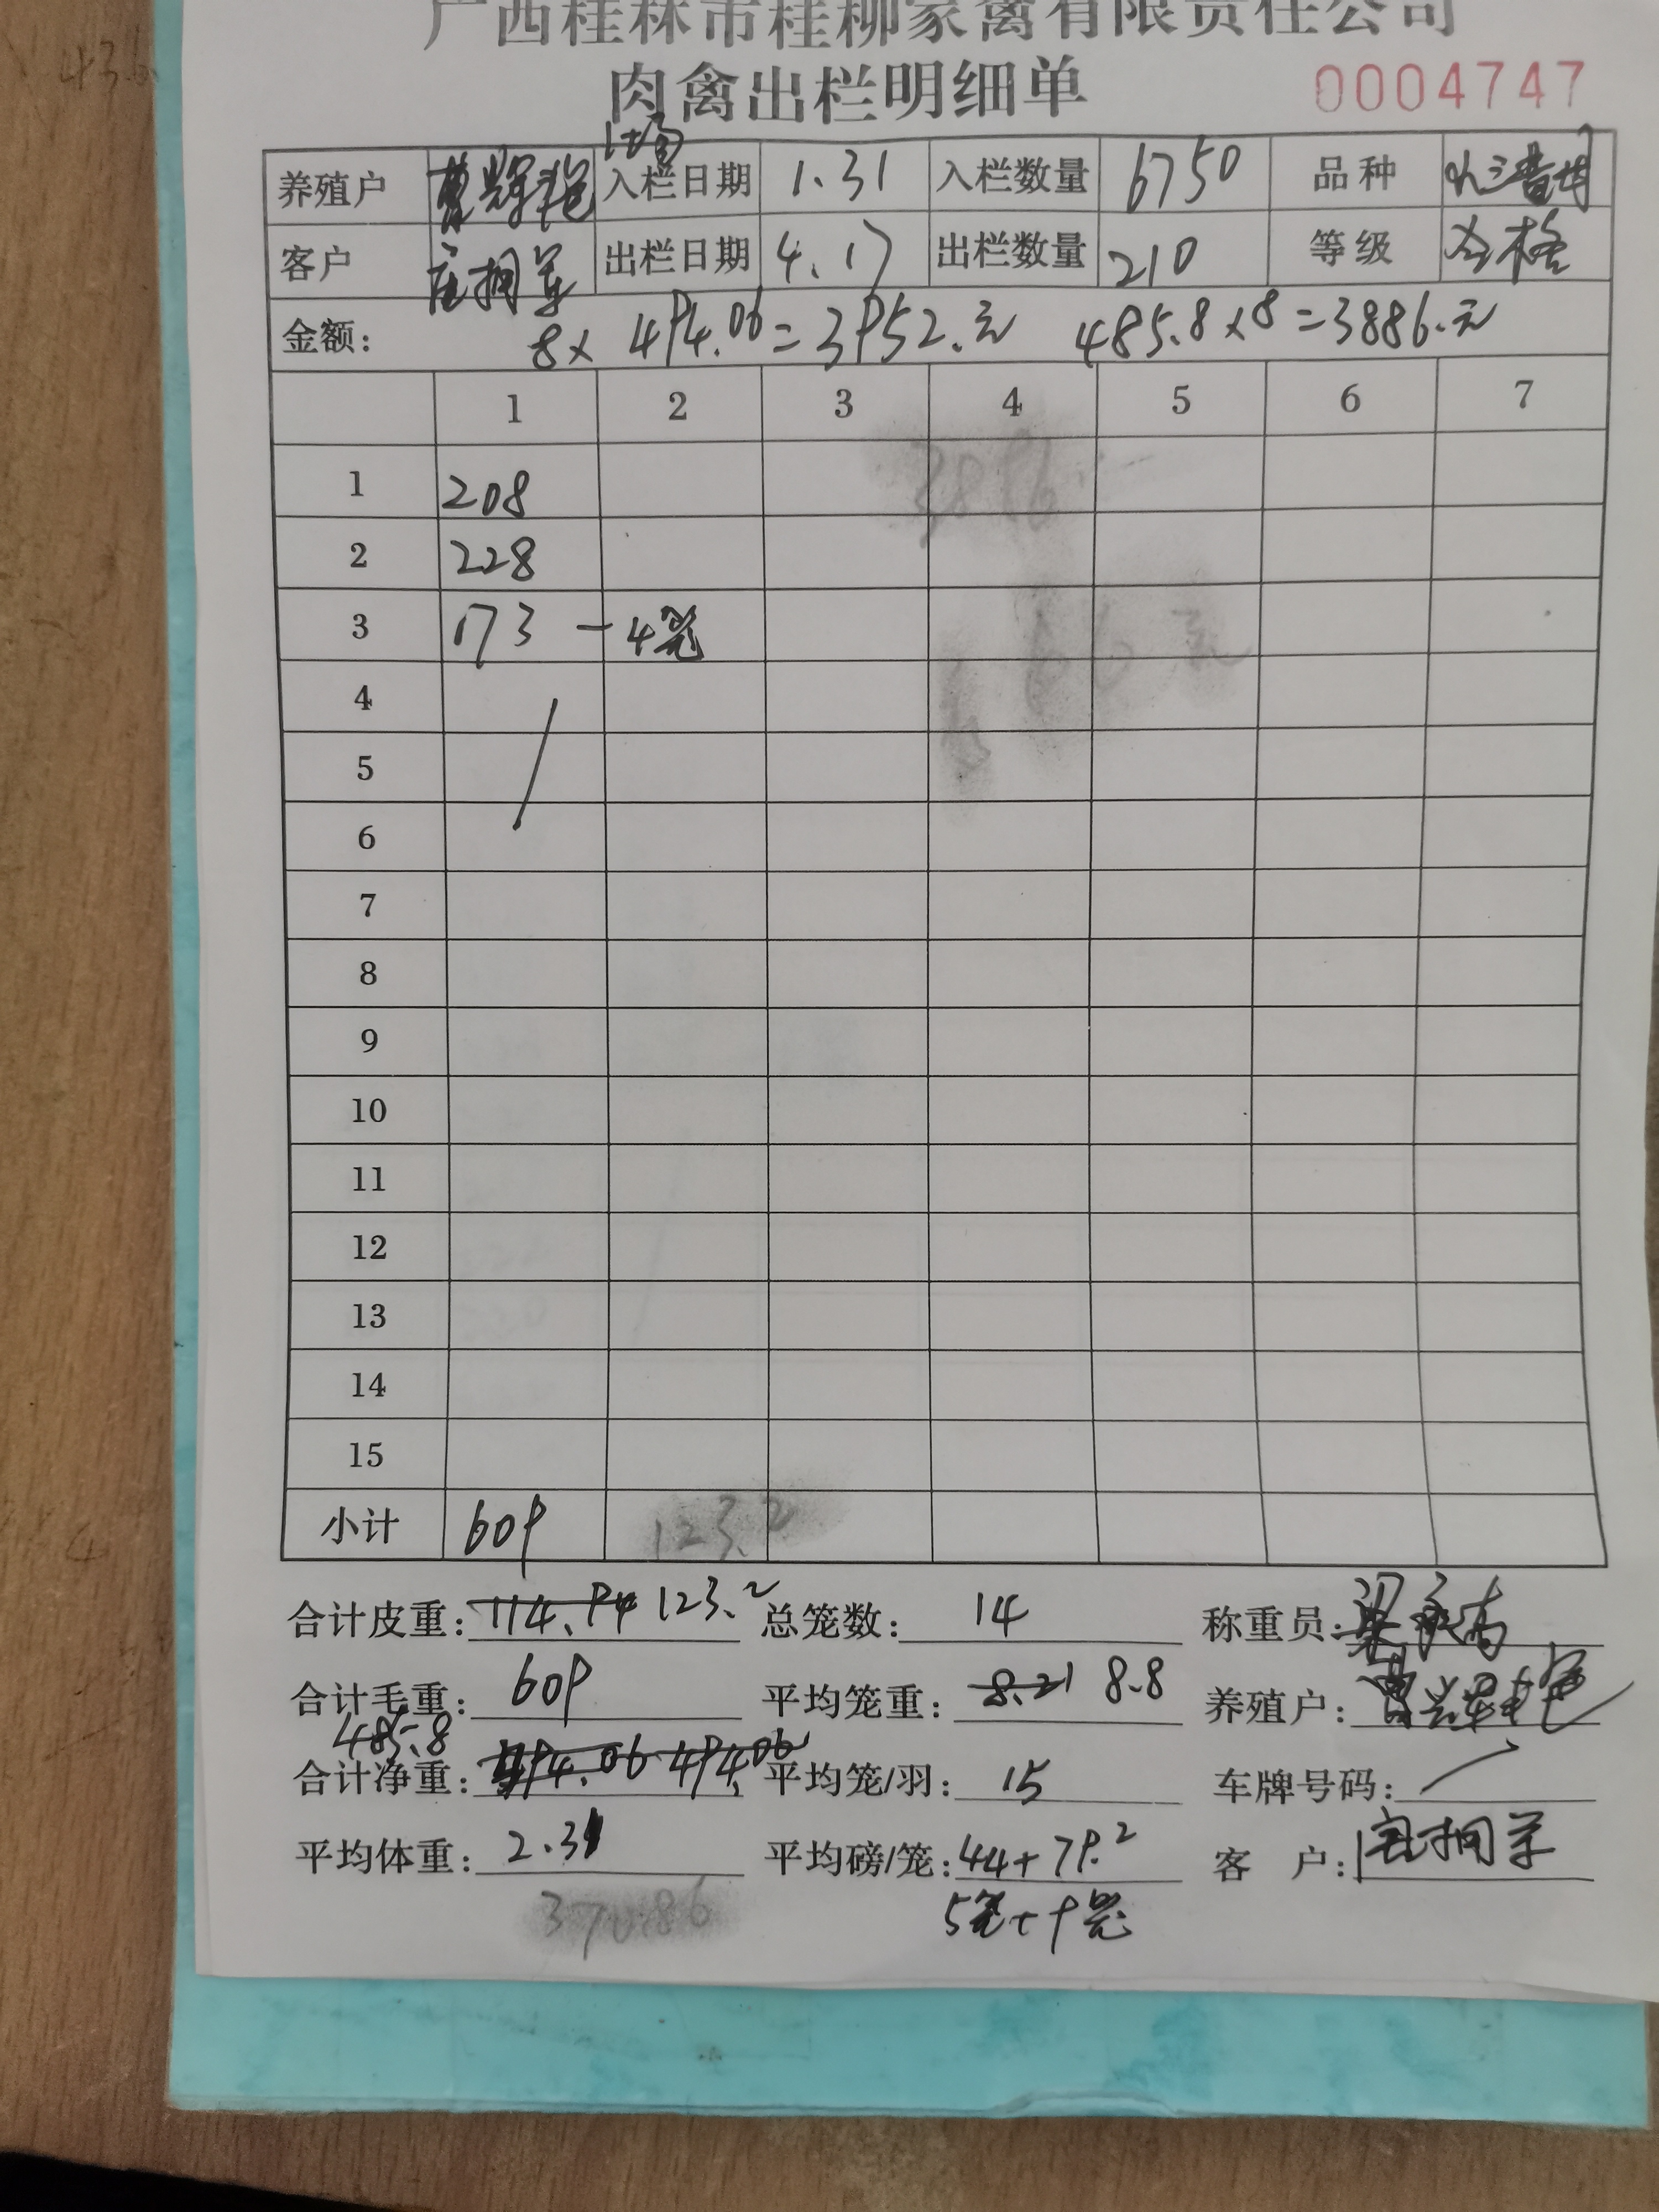 广西桂林市桂柳家禽有限责任公司
肉禽出栏明细单 0004747
养殖户 入栏日期 1.31 入栏数量 6750 品种
客户 出栏日期 4.17 出栏数量 210 等级 合格
金额: 8× 494.06=3952.元 485.8×8=3886.元
1 2 3 4 5 6 7
1 208
2 228
3 173 - 4笼
4
5
6
7
8
9
10
11
12
13
14
15
小计 609 123.2
合计皮重: 114.94 123.2 总笼数: 14 称重员:
合计毛重: 609 平均笼重: 8.21 8.8 养殖户:
485.8
合计净重: 494.06 494.06 平均笼/羽: 15 车牌号码:
平均体重: 2.31 平均磅/笼: 44+79.2 客 户:
370.86 5笼+9笼